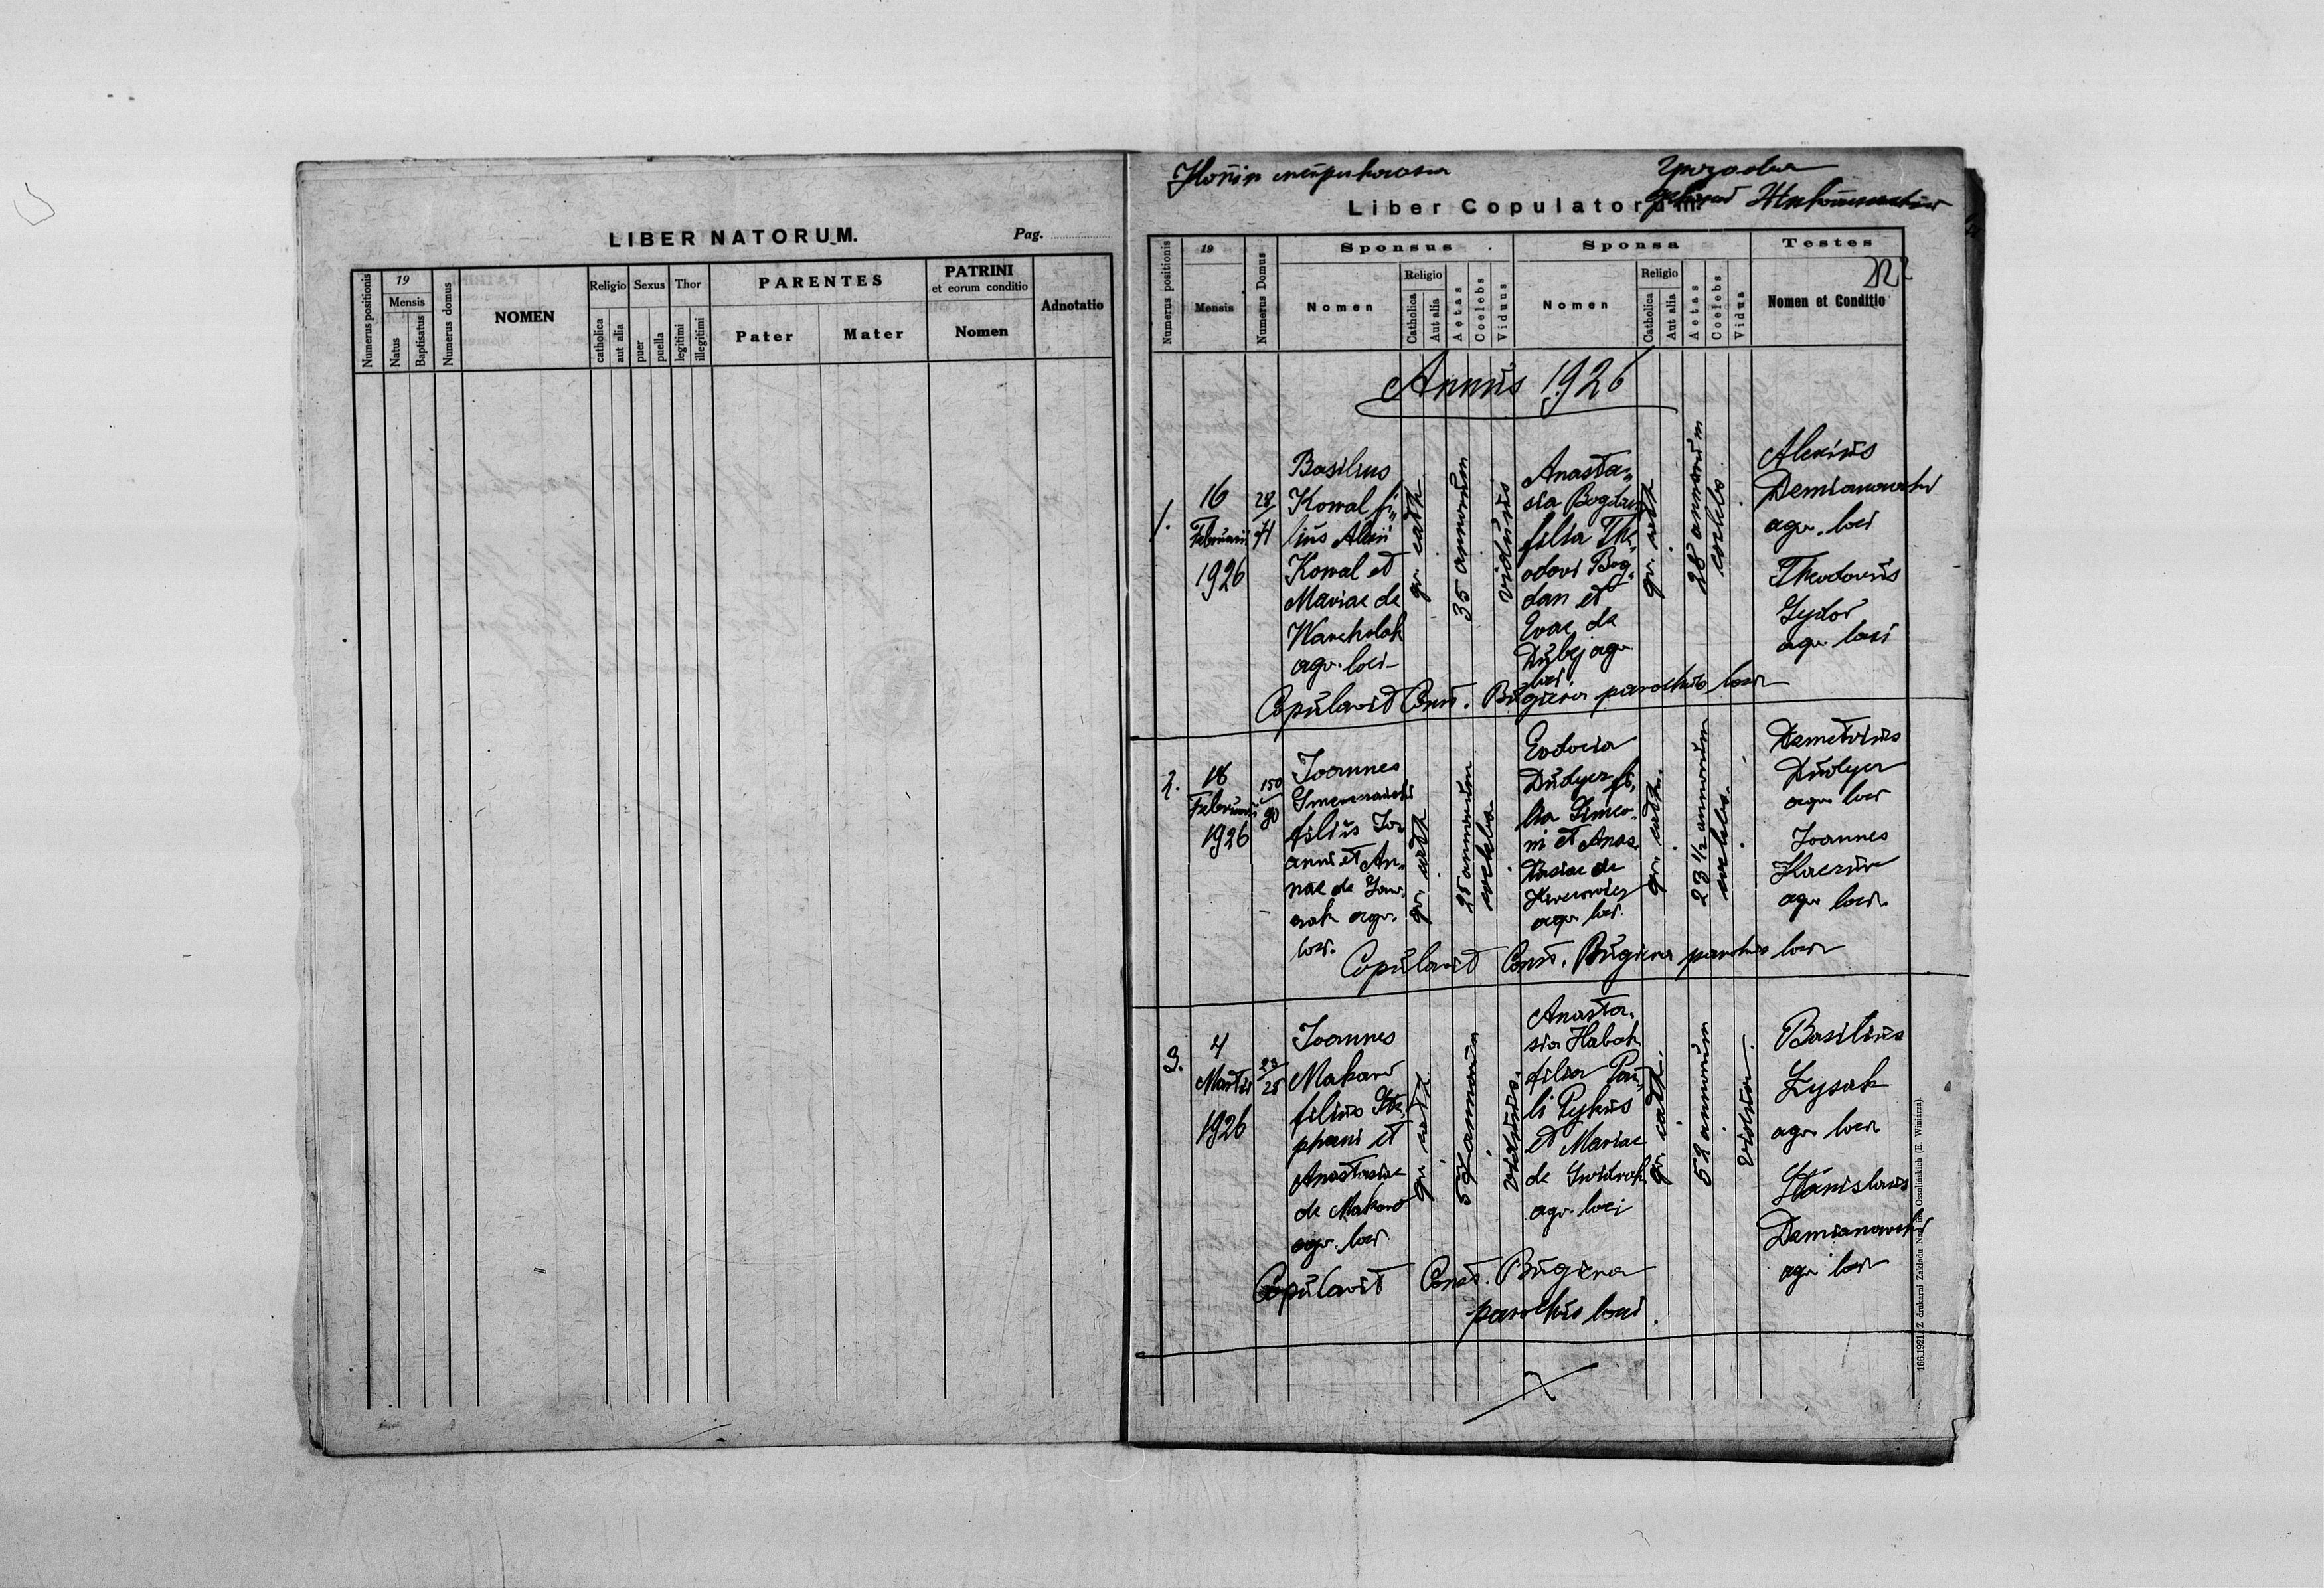 LIBER NATORUM.
Pag.
Numerus positionis
19
Mensis
Natus
Baptisatus
Numerus domus
NOMEN
Religio
catholica
aut alia
Sexus
puer
puella
Thor
legitimi
illegitimi
PARENTES
Pater
Mater
PATRINI
et eorum conditio
Nomen
Adnotatio
Liber Copulatorum
Numerus positionis
19
Mensis
Numerus Domus
Sponsus
Nomen
Religio
Catholica
Aut alia
Aetas
Coelebs
Viduus
Sponsa
Nomen
Religio
Catholica
Aut alia
Aetas
Coelebs
Vidua
Testes
Nomen et Conditio
Annus 1926
1.
16
Februarii
1926
Basilius
Kowal fi„
lius
Kowal et
Mariae de
Warcholak
agr. loci
gr. cath.
35 annorum
viduus
Anasta„
sia Bogdan
filia The„
odori Bog„
dan et
Evae de
Dubej agr.
loci
gr. cath
28 annorum
coelebs
Alexius
Demianowski
agr. loci
Theodorus
Sydor
agr. loci
Copulavit Const. Bugiera parochus loci
2.
18
Februarii
1926
150
90
Joannes
filius Jo„
anni et An„
nae de
agr.
loci.
gr. cath
25 annorum
coelebs.
Eudocia
Dudycz fi„
lia Simeo„
ni et Anas„
tasiae de
agr. loci.
gr. cath.
23 1/2 annorum
coelebs.
Demetrius
Dudycz
agr. loci
Joannes
agr. loci.
Copulavit Const. Bugiera parochus loci
3.
4
Martii
1926
Joannes
Makar
filius Ste„
phani et
Anastasiae
de Makar
agr. loci.
gr. cath.
annorum
viduus.
Anasta„
sia Habak
filia Pau„
li Pykus
et Mariae
de
agr. loci
gr. cath.
52 annorum
vidua.
Basilius
Lysak
agr. loci
Stanislaus
Demianowski
agr. loci
Copulavit Const. Bugiera
parochus loci.
166.1921. Z drukarni Zakładu Nar. im. Ossolińskich (E. Winiarza).